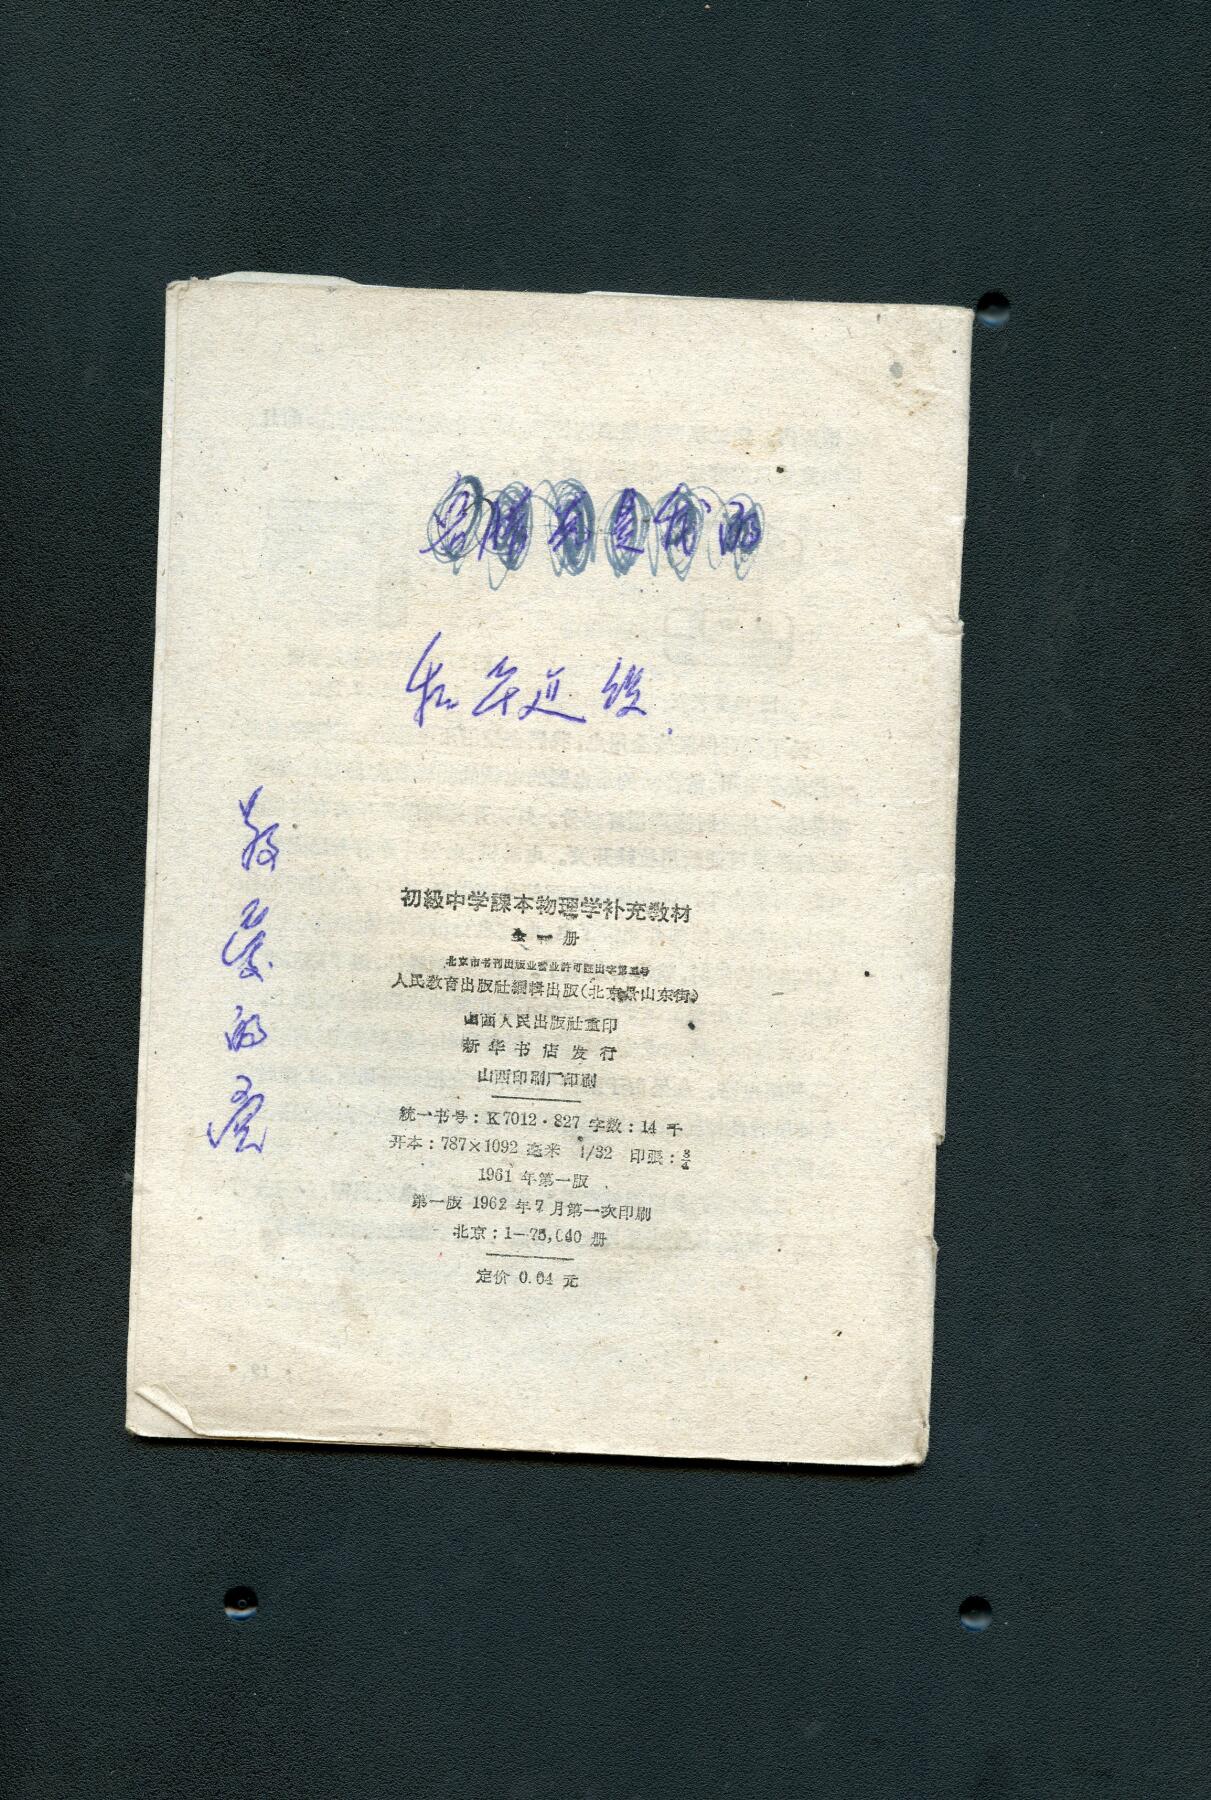 是我的
敬爱的
初級中学課本物理学补充教材
全一册
北京市书刊出版业营业許可証出字第二号
人民教育出版社編輯出版(北京景山东街)
山西人民出版社重印
新华书店发行
山西印刷厂印刷
統一书号:K7012·827 字数:14千
开本:787×1092 毫米 1/32 印張:3/4
1961年第一版
第一版 1962年7月第一次印刷
北京:1—75,040 册
定价 0.04 元